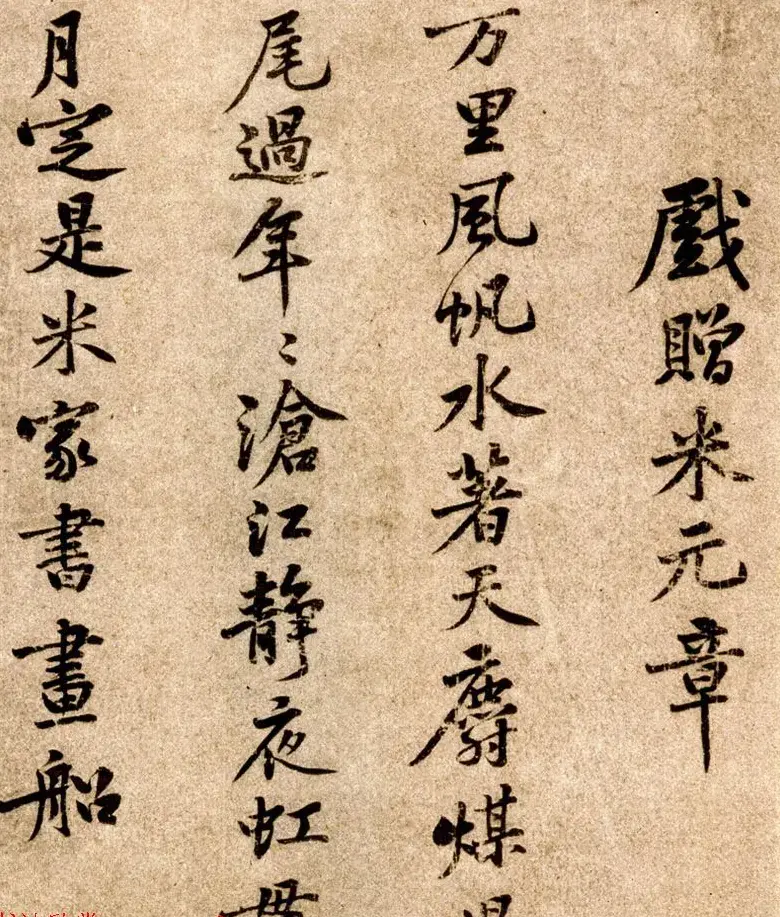 戲贈米元章
万里風帆水著天麝煤
尾過年〻滄江静夜虹
月定是米家書畫船